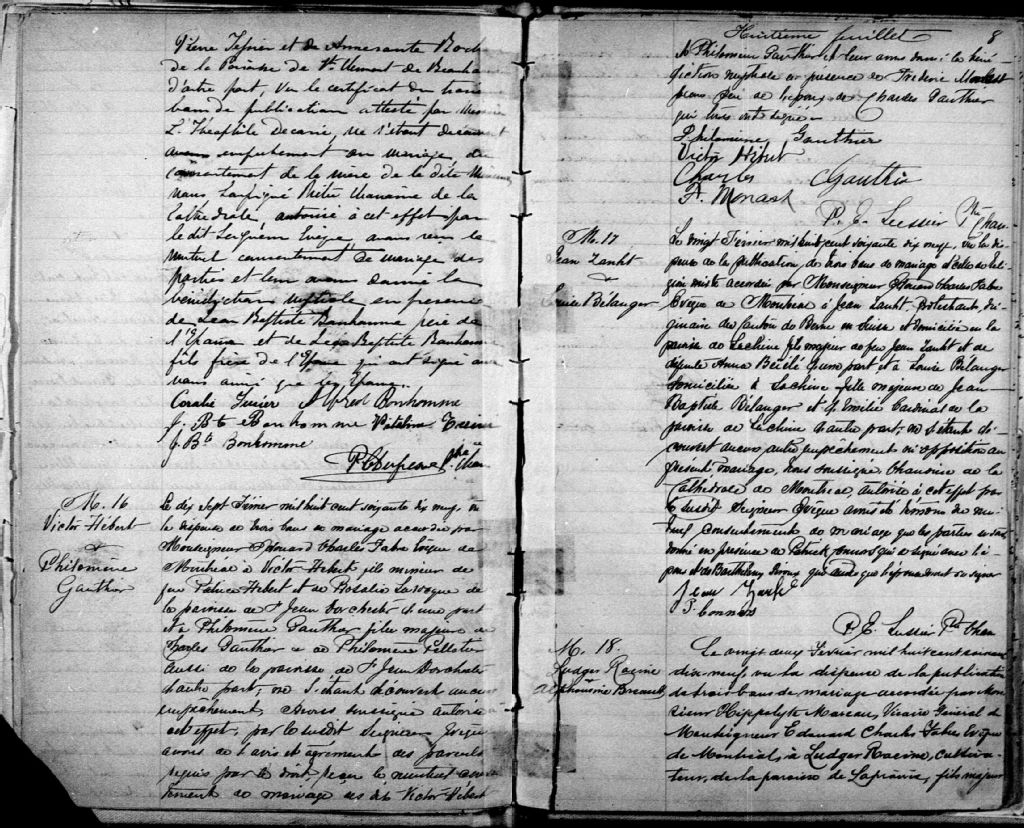 Pierre Texier et de
de la Paroisse de St Clement de Beauhar
d'autre part, Vu le certificat du trois
bans de publication attesté par Messire
L. Theophile Decarie, ne s'étant decouvert
aucun empechement au mariage, du
consentement de la mère de la dite
nous Prêtre Vicaire de la
Cathédrale, autorisé à cet effet par
le dit Seigneur Evêque, avons reçu le
mutuel consentement de mariage des
Parties et leur avons donné la
benediction nuptiale en presence
de Jean Baptiste Bonhomme père de
l'Epoux et de Jean Baptiste Bonhomme
fils frère de l'Epoux qui ont signé avec
nous ainsi que les Epoux.
Coralie Alfred Bonhomme
J. Bte Bonhomme
J. Bte Bonhomme
M. 16
Victor Hébert
&
Philomène
Gauthier
Le dix Sept Février mil huit cent soixante dix neuf, vu
la dispense de trois bans de mariage accordée par
Monseigneur Edouard Charles Fabre Evêque de
Montréal à Victor Hébert fils mineur de
feu Patrice Hébert et de Rosalie
de la paroisse de St Jean Dorchester d'une part
et à Philomène Gauthier fille majeure de
Charles Gauthier et de Philomène Pelletier
aussi de la paroisse de St Jean Dorchester
d'autre part; ne s'étant découvert aucun
empechement, Nous soussigné autorisé à
cet effet, par le susdit Seigneur Evêque
avons de l'avis et agrement des parents
requis par le droit, reçu le mutuel consen
tement de mariage des dits Victor Hébert
Huitième feuillet 8
& Philomène Gauthier et leur avons donné la béné
diction nuptiale en presence de Fréderic Monast
de l'époux, de Charles Gauthier
qui tous ont signé.
Philomène Gauthier
Victor Hébert
Charles Gauthier
F. Monast
P. E. Lussier Ptre Chan
M. 17
Jean
&
Louise Bélanger
Le vingt Février mil huit cent soixante dix neuf, vu la dis
pense de la publication de trois bans de mariage & celle de reli
gion mixte accordées par Monseigneur Edouard Charles Fabre
Evêque de Montréal à Jean Protestant, ori
ginaire du Canton de Berne en Suisse et domicilié en la
paroisse de Lachine fils majeur de feu Jean et de
défunte Anna d'une part et à Louise Bélanger
domiciliée à Lachine fille majeure de Jean
Baptiste Bélanger et d'Emilie Cardinal de la
paroisse de Lachine d'autre part; ne s'étant dé
couvert aucun autre empêchement ni opposition au
présent mariage, Nous soussigné Chanoine de la
Cathédrale de Montréal, autorisé à cet effet par
le susdit Seigneur Evêque avons été témoins du mu
tuel consentement de mariage que les parties se sont
donné en presence de Patrick Connors qui a signé avec l'é
poux et de Barthelemy qui ainsi que l'épouse n'ont su signer
Jean
P. Connors
P. E. Lussier Ptre Chan
M. 18.
Ludger Racine
&
Alphonsine
Le vingt deux Fevrier mil huit cent soixante
dix-neuf, vu la dispense de la publication
de trois bans de mariage accordée par Mon
sieur Hippolyte Moreau, Vicaire Général de
Monseigneur Edouard Charles Fabre Evêque
de Montréal, à Ludger Racine, cultiva-
teur, de la paroisse de Laprairie, fils majeur